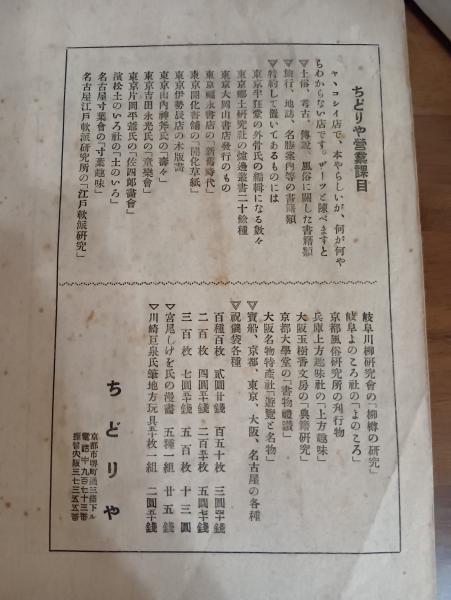 ちどりや營業課目
ヤヽコシイ店で、本やらしいが、何が何や
らわからない店です。ザーツと陳べますと
▽土俗、考古、傳說、風俗に關した書籍類
▽旅行、地誌、名勝案內等の書籍類
▽特約して置いてあるものには
東京半狂堂の外骨氏の編輯になる數々
東京鄕土硏究社の爐邊叢書二十餘種
東京大岡山書店發行のもの
東京福永書店の「新舊時代」
東京開化書舖の「開化草紙」
東京伊勢辰店の木版畫
東京山內神斧氏の「壽々」
東京吉田永光氏の「童樂會」
東京片岡平爺氏の「佐四郞畵會」
濱松土のいろ社の「土のいろ」
名古屋寸葉會の「寸葉趣味」
名古屋江戶軟派硏究所の「江戶軟派硏究」
岐阜川柳硏究會の「柳樽の硏究」
岐阜よのころ社の「よのころ」
京都風俗硏究所の刊行物
兵庫上方趣味社の「上方趣味」
大阪玉樹香文房の「典籍硏究」
京都大學堂の「書物禮讚」
大阪名物特產社「遊覽と名物」
▽寶船、京都、東京、大阪、名古屋の各種
▽祝儀袋各種
百種百枚 貳圓廿錢 百五十枚 三圓卅錢
二百枚 四圓卅錢 二百五十枚 五圓卅錢
三百枚 七圓卅錢 五百枚 十三圓
▽宮尾しげを氏の漫畫 五種一組 廿五錢
▽川崎巨泉氏筆地方玩具五十枚一組 二圓五十錢
ちどりや
京都市堺町通三條下ル
電話中九百七十三番
振替大阪三七三五五番